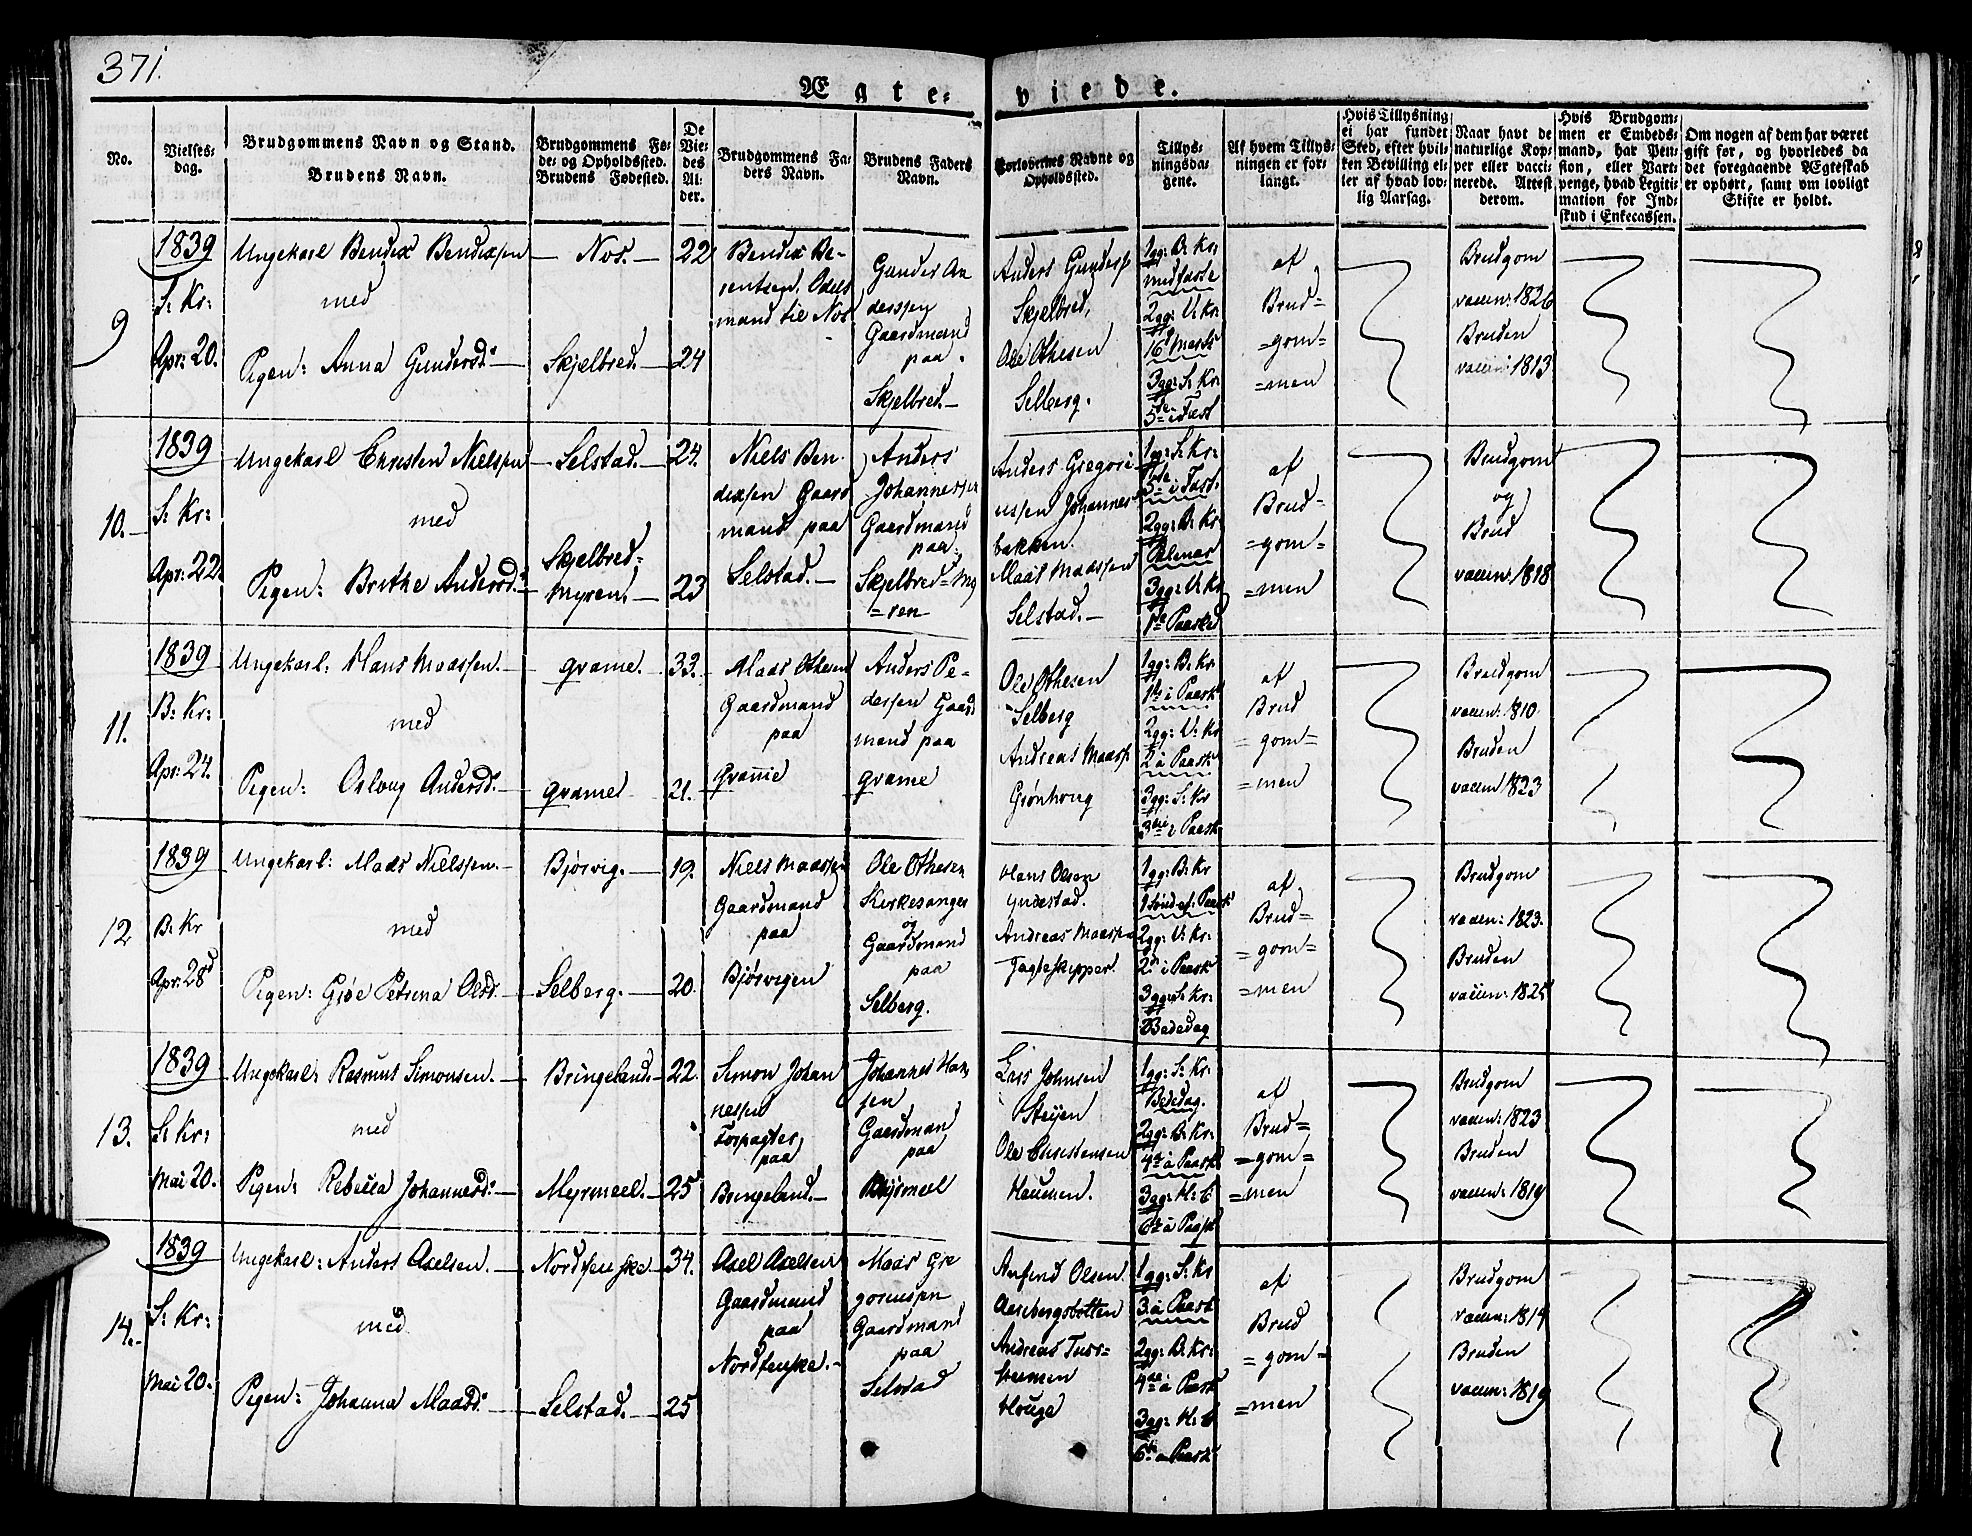 371.
Ægte-
viede.
No.
Vielses-
dag.
Brudgommens Navn og Stand.
Brudens Navn.
Brudgommens Fø-
de- og Opholdssted.
Brudens Fødested.
De
Vie-
des
Al-
der.
Brudgommens Fa-
ders Navn.
Brudens Faders
Navn.
Forlovernes Navne og
Opholdssted.
Tillys-
ningsda-
gene.
Af hvem Tillys-
ningen er for-
langt.
Hvis Tillysning
ei har fundet
Sted, efter hvil-
ken Bevilling el-
ler af hvad lov-
lig Aarsag.
Naar havt de
naturlige Kop-
per eller vacci-
nerede. Attest
derom.
Hvis Brudgom-
men er Embeds-
mand, har Pen-
sion, eller Vart-
penge, hvad Legiti-
mation for Ind-
skud i Enkecassen.
Om nogen af dem har været
gift før, og hvorledes da
det foregaaende Ægteskab
er ophørt, samt om lovligt
Skifte er holdt.
9
1839
S: Kr:
Apr: 20.
Ungekarl Bendix Bendixsen
med
Pigen: Anna Gundersd:
Nos.
Skjelbred.
22
24
Bendix Be-
rentsen. Odels
mand til Nos
Gunder An
derssen
Gaardmand
paa
Skjelbred.
Anders Gunders
Skjelbred,
Ole Othesen
Selberg.
1gg: B: Kr:
midfaste
2gg: V: Kr:
16 Marts
3gg: S: Kr:
5te i Fast
af
Brud=
=gom=
=men
Brudgom
vaccin: 1826
Bruden
vaccin: 1813
10.
1839
S: Kr:
Apr: 22.
Ungekarl Christen Nielsen
med
Pigen: Brithe Andersd:
Selstad.
Skjelbred=
Myren.
24.
23
Niels Ben
dixsen Gaard
mand paa
Selstad.
Anders
Johannessen
Gaardmand
paa
Skjelbred=My
=ren
Anders Gregori
ussen Johannes
bakken.
Maas Maassen
Selstad.
1gg: S: Kr:
5te i Fast.
2gg: B: Kr
Palmar
3gg: V: Kr
1te Paasked
af
Brud=
=gom=
=men
Brudgom
og
Brud
vaccin: 1818
11.
1839
B: Kr:
Apr: 24.
Ungekarl: Hans Maassen.
med
Pigen: Oslaug Andersd:
Grame.
Grame
33.
21.
Maas Othesen
Gaardmand
paa
Grame
Anders Pe-
dersen Gaard
mand paa
Grame
Ole Othesen
Selberg
Andreas Maass
Grønhoug
1gg: B: Kr
1te i Paask
2gg: V: Kr
2 i Paask
3gg: S: Kr
3die i Paask
af
Brud
=gom=
=men
Brudgom
vaccin: 1810
Bruden
vaccin 1823
12
1839
B: Kr
Apr: 28
Ungekarl: Mads Nielssen.
med
Pigen: Grøe Petrina Olsd.
Bjørvig.
Selberg.
19.
20.
Niels Maassen
Gaardmand
paa
Bjørvigen
Ole Othesen
Kirkesanger
og
Gaardmand
paa
Selberg.
Hans Olsen
Yndestad.
Andreas Maassen
Jagteskipper.
1gg: B: Kr
1 Sønd. ef: Paask
2gg: V: Kr:
2n i Paask
3gg: S: Kr:
Bededag
af
Brud=
=gom=
=men
Brudgom
vaccin: 1823.
Bruden
vaccin: 1825
13.
1839
S: Kr:
Mai 20.
Ungekarl: Rasmus Simonsen.
med
Pigen: Rebecca Johannesd:
Bringeland.
Myrmeel.
22.
25
Simon Johan
nessen
Forpagter
paa
Bringeland.
Johannes Han
sen
Gaardman
paa
Myrmeel
Lars Johnsen
Steien
Ole Christensen
Heumen.
1gg: S: Kr.
Bededag.
2gg: B: Kr:
4de à Paask
3gg: H: C
6te à Paask
af
Brud=
=gom=
=men
Brudgom
vaccin: 1823
Bruden
vaccin: 1819
14.
1839
S: Kr:
Mai 20.
Ungekarl: Anders Axelsen.
med
Pigen: Johanna Maasd:
Nordfenske
Selstad.
34.
25
Axel Axelsen
Gaardmand
paa
Nordfenske.
Maas Gre
goriussen
Gaardmand
paa
Selstad
Anfind Olsen
Aasebergsbotten
Andreas
Houge
1gg: S: Kr
3 à Paask
2gg: B: Kr:
4de à Paask
3gg: H: C
6te à Paask
af
Brud
=gom=
=men
Brudgom
vaccin: 1819
Bruden
vaccin: 1819